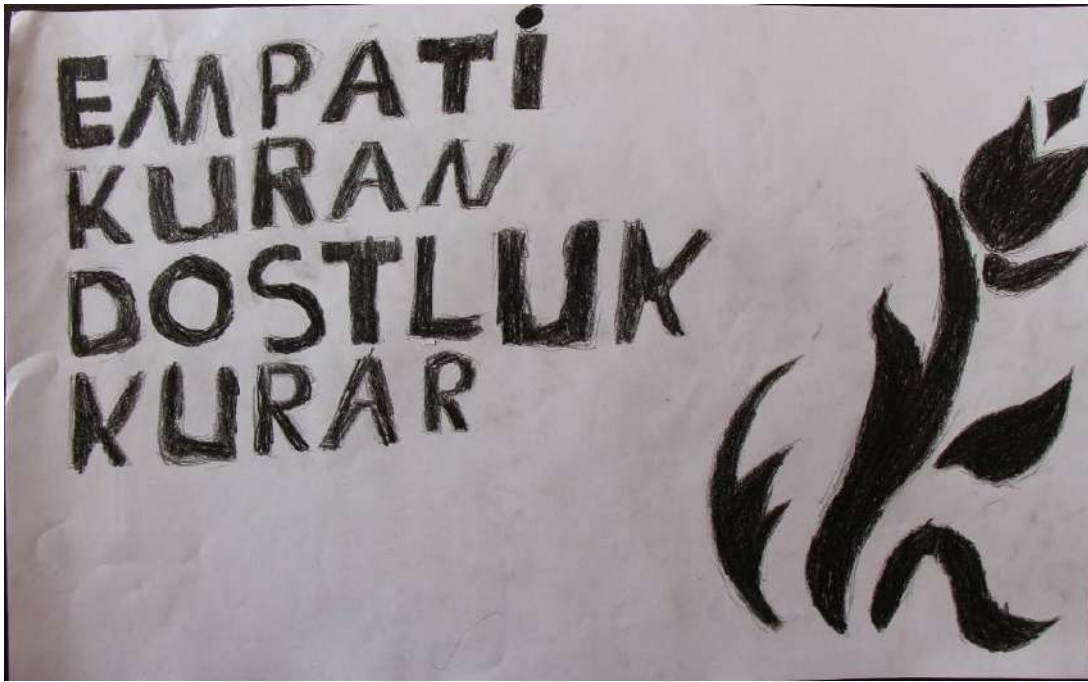 EMPATİ
KURAN
DOSTLUK
KURAR